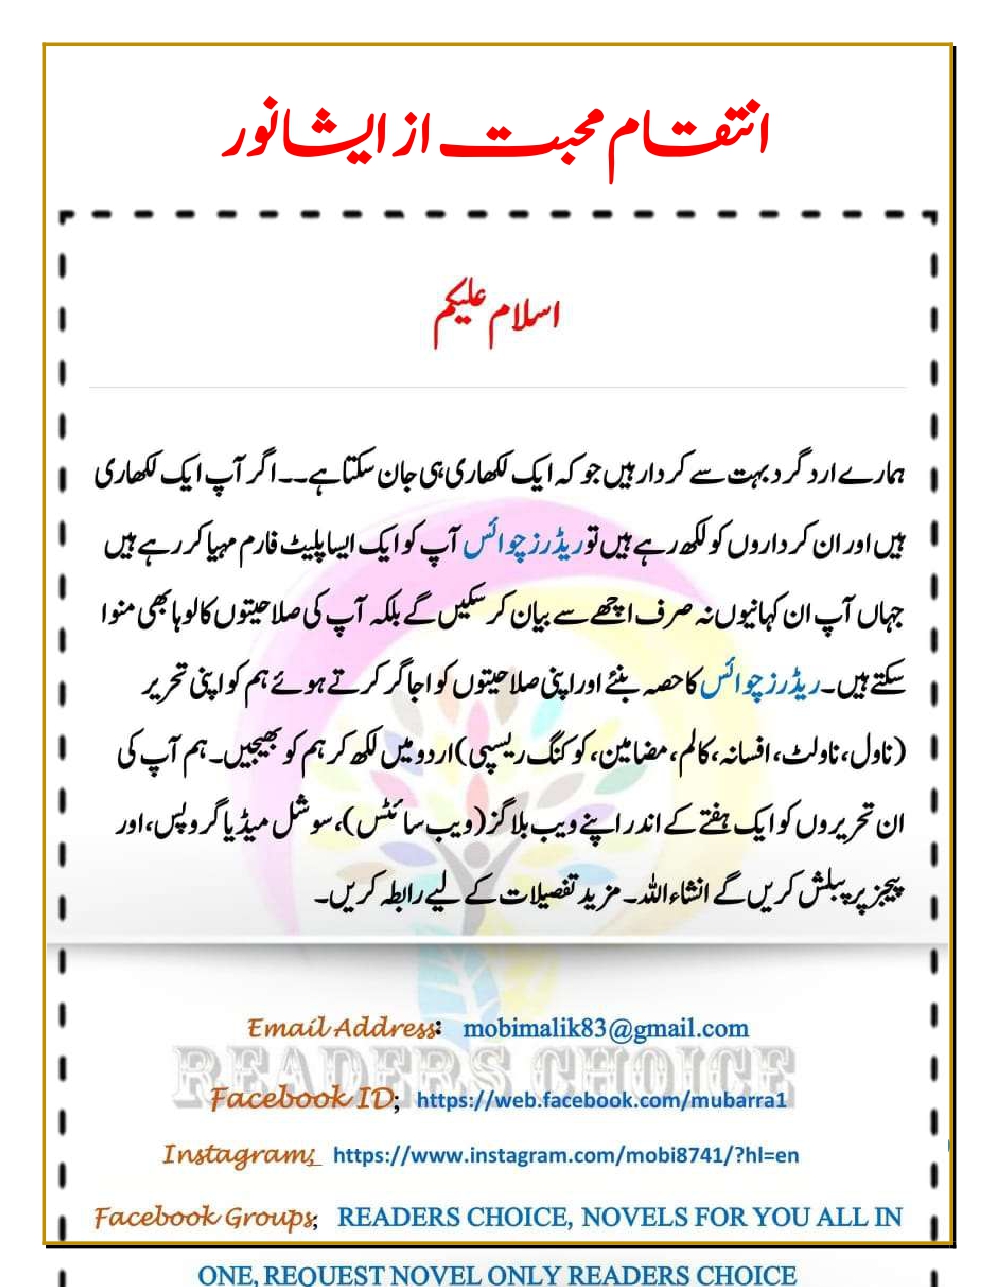 انتقام محبت از ایشانور
اسلام علیکم
ہمارے ارد گرد بہت سے کردار ہیں جو کہ ایک لکھاری ہی جان سکتا ہے۔۔ اگر آپ ایک لکھاری
ہیں اور ان کرداروں کو لکھ رہے ہیں تو ریڈرز چوائس آپ کو ایک ایسا پلیٹ فارم مہیا کر رہے ہیں
جہاں آپ ان کہانیوں نہ صرف اچھے سے بیان کر سکیں گے بلکہ آپ کی صلاحیتوں کا لوہا بھی منوا
سکتے ہیں۔ ریڈرز چوائس کا حصہ بنئے اور اپنی صلاحیتوں کو اجاگر کرتے ہوئے ہم کو اپنی تحریر
(ناول، ناولٹ، افسانہ، کالم، مضامین، کوکنگ ریسپی) اردو میں لکھ کر ہم کو بھیجیں۔ ہم آپ کی
ان تحریروں کو ایک ہفتے کے اندر اپنے ویب بلاگز (ویب سائٹس)، سوشل میڈیا گروپس، اور
پیجز پر پبلش کریں گے انشاءاللہ۔ مزید تفصیلات کے لیے رابطہ کریں۔
Email Address: mobimalik83@gmail.com
READERS CHOICE
Facebook ID; https://web.facebook.com/mubarra1
Instagram; https://www.instagram.com/mobi8741/?hl=en
Facebook Groups; READERS CHOICE, NOVELS FOR YOU ALL IN
ONE, REQUEST NOVEL ONLY READERS CHOICE